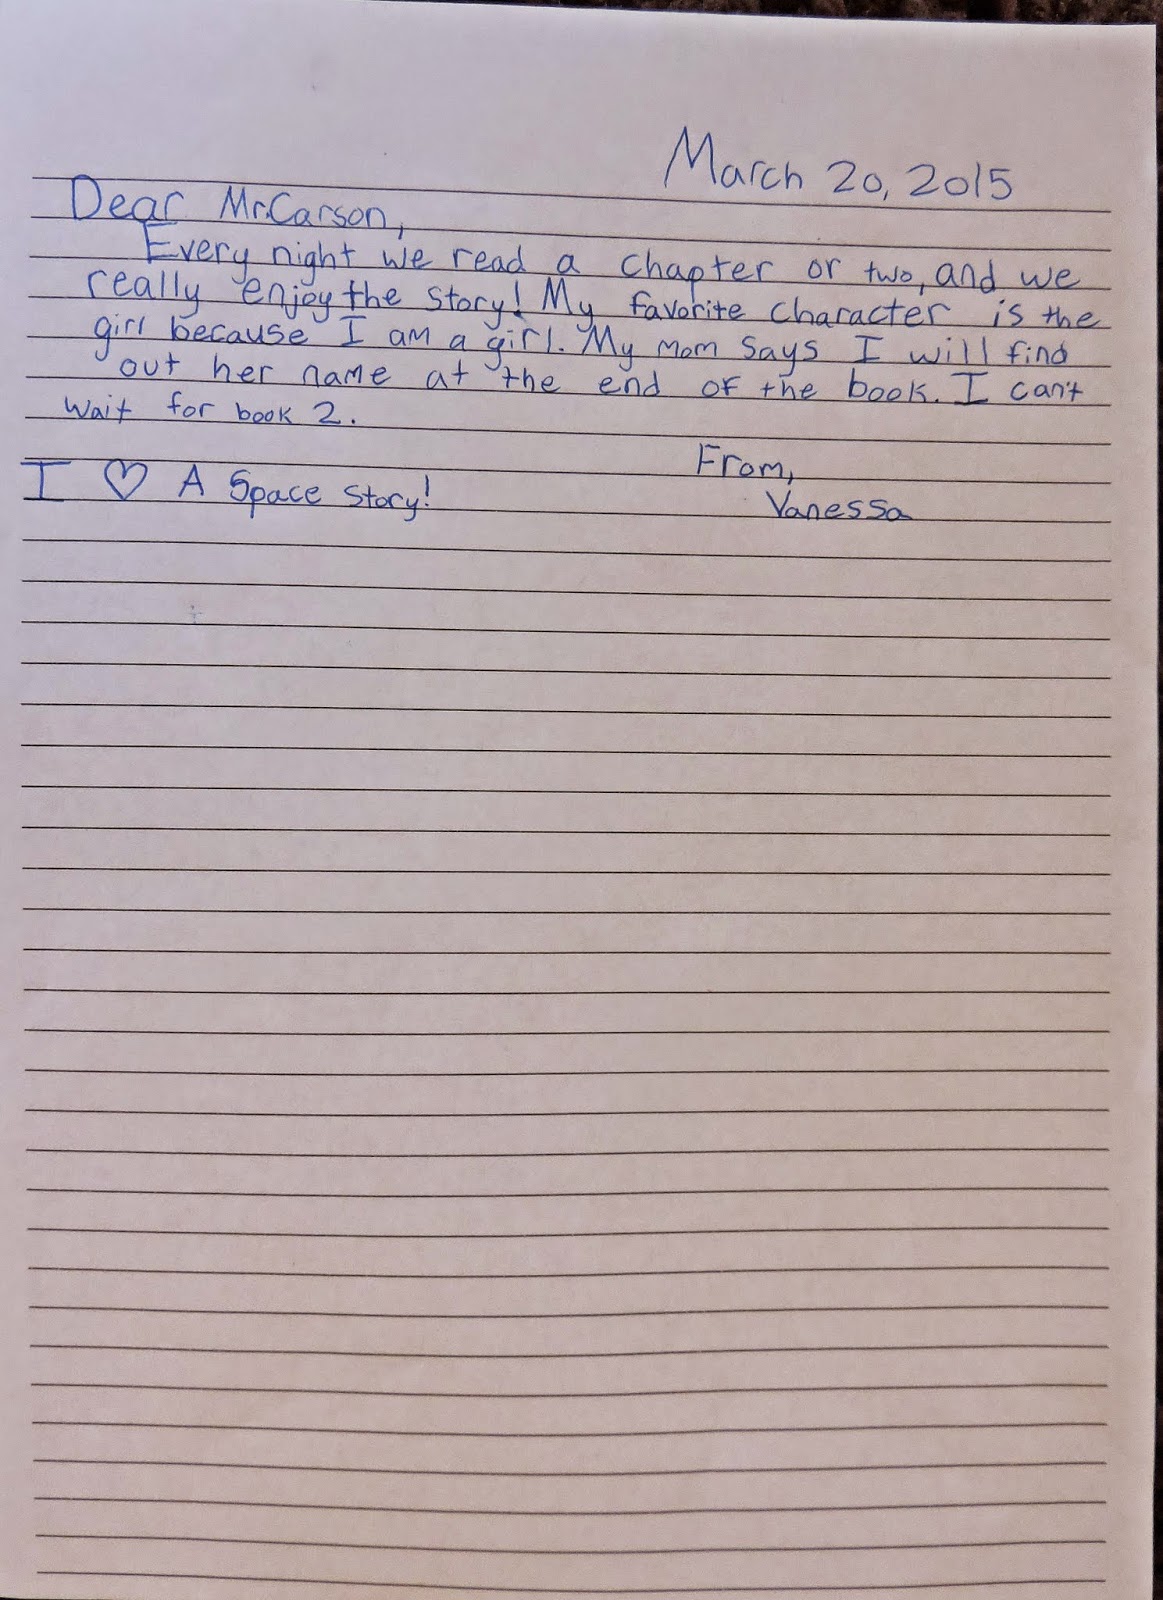 March 20, 2015
Dear Mr.Carson,
Every night we read a chapter or two, and we
really enjoy the story! My favorite character is the
girl because I am a girl. My mom says I will find
out her name at the end of the book. I can't
wait for book 2.
From,
I ♡ A Space Story!
Vanessa